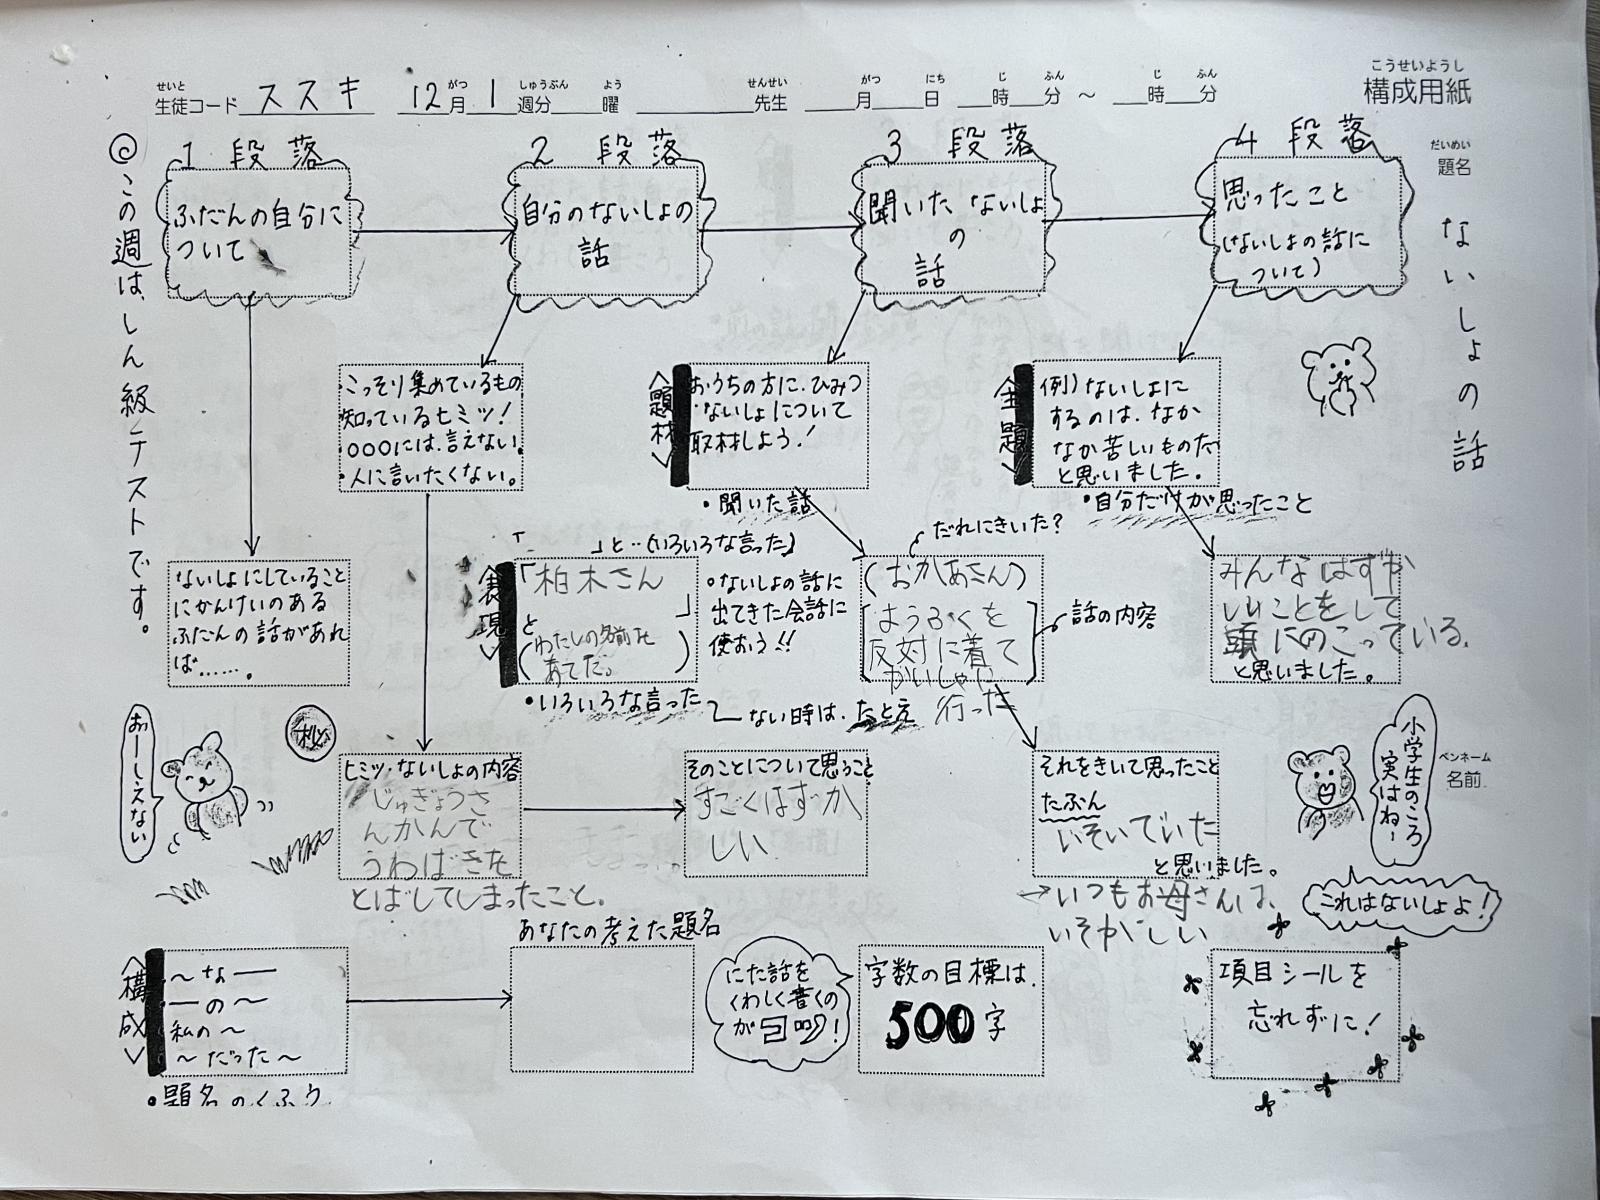 こうせいようし
構成用紙
せいと がつ しゅうぶん よう せんせい がつ にち じ ふん じ ふん
生徒コード ススキ 12月 1 週分 曜 先生 月 日 時 分 ～ 時 分
だいめい
題名
ないしょの話
ペンネーム
名前
◎この週は、しん級テストです。
1 段落
ふだんの自分に
ついて
2 段落
自分のないしょの
話
3 段落
聞いたないしょ
の
話
4 段落
思ったこと
(ないしょの話に
ついて)
・こっそり集めているもの
知っているヒミツ！
〇〇〇には、言えない。
・人に言いたくない。
<題材>
おうちの方に、ひみつ
ないしょについて
取材しよう！
・聞いた話
<主題>
例)ないしょに
するのは、なか
なか苦しいものだ
と思いました。
・自分だけが思ったこと
ないしょにしていること
にかんけいのある
ふだんの話があれ
ば……。
「　」と‥(いろいろな言った)
<表現>
「柏木さん
」
と
(わたしの名前を
あてだ。)
・いろいろな言った
・ないしょの話に
出てきた会話に
使おう!!
ない時は、たとえ
だれにきいた？
(おかあさん)
ようふくを
反対に着て
かいしゃに
行った
話の内容
みんなはずか
しいことをして
頭にのこっている。
と思いました。
おーしえない
秘
ヒミツ・ないしょの内容
じゅぎょうさ
んかんで
うわばきを
とばしてしまったこと。
そのことについて思うこと
すごくはずか
しい
それをきいて思ったこと
たぶん
いそいでいた
と思いました。
→いつもお母さんは、
いそがしい
小学生のころ
実はね～
これはないしょよ！
<構成>
～な―
―の～
私の～
～だった～
・題名のくふう
あなたの考えた題名
にた話を
くわしく書くの
が
！
字数の目標は、
500字
項目シールを
忘れずに！